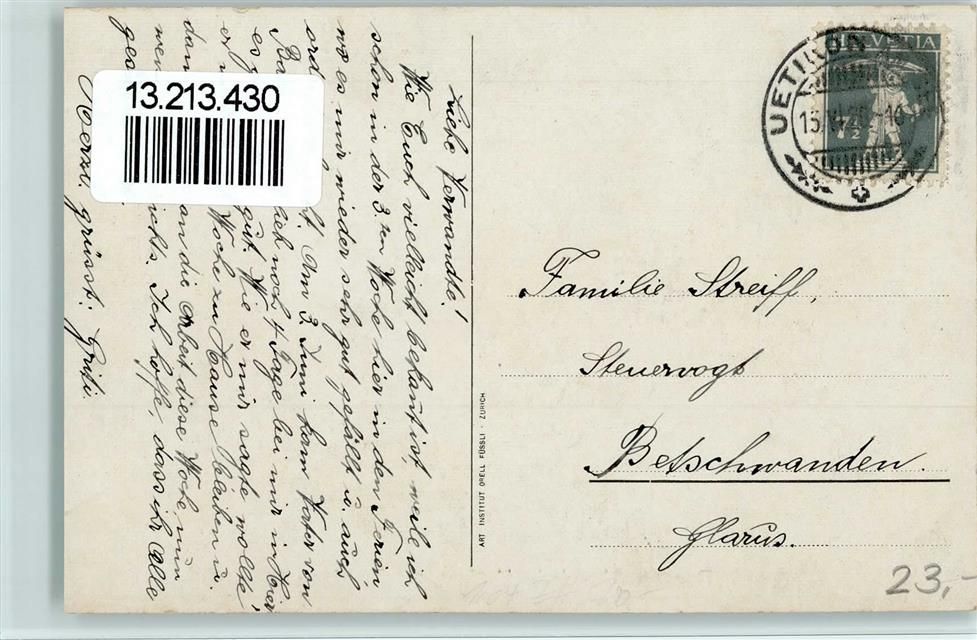 13.213.430
Liebe Verwandte!
Wie Euch vielleicht bekant ist, weile ich
schon in der 3.ten Woche hier in den Ferien
wo es mir wieder sehr gut gefällt u. auch
Am 3. Juni kam Vater von
noch 4 Tage bei mir in
gut. Wie er mir sagte wollte
Woche zu Hause bleiben u.
an die Arbeit diese Woche nun
Ich hoffe, dass ihr alle
ges
Herzl. grüsst: Griti.
ART. INSTITUT ORELL FÜSSLI · ZÜRICH
HELVETIA
7½
UETIKON
Familie Streiff,
Steuervogt
Betschwanden.
Glarus.
23,-